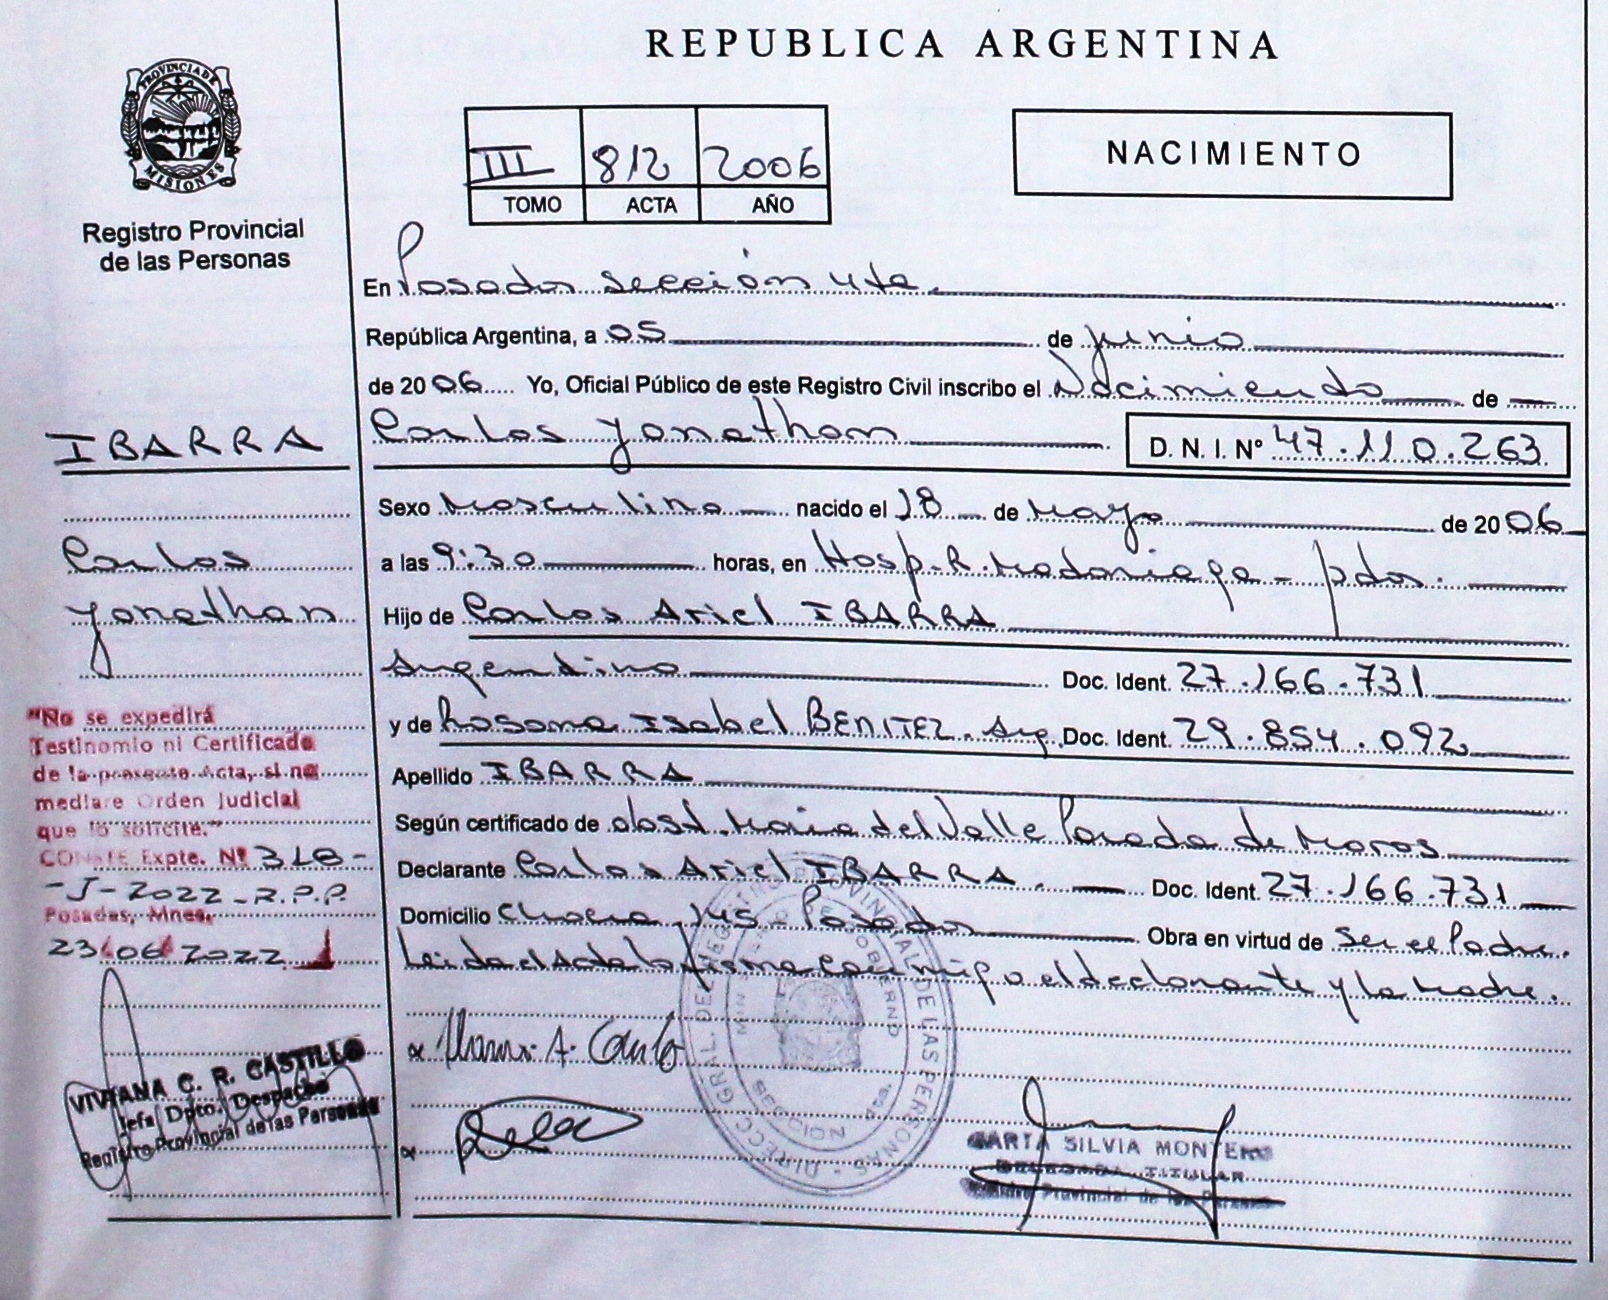 REPUBLICA ARGENTINA
PROVINCIA DE
MISIONES
Registro Provincial
de las Personas
III 812 2006
TOMO ACTA AÑO
NACIMIENTO
En Posadas sección 4ta.
República Argentina, a 05 de junio
de 2006 Yo, Oficial Público de este Registro Civil inscribo el Nacimiento de
Carlos Yonathan
D. N. I. Nº 47.110.263
Sexo Masculino nacido el 18 de Mayo de 2006
a las 9:30 horas, en Hosp. R. Madariaga - Pdas.
Hijo de Carlos Ariel IBARRA
Argentino Doc. Ident. 27.166.731
y de Rosana Isabel BENITEZ. Arg. Doc. Ident. 29.854.092
Apellido IBARRA
Según certificado de obst. Maria del Valle Posada de Moros
Declarante Carlos Ariel IBARRA. Doc. Ident. 27.166.731
Domicilio Posadas Obra en virtud de ser el Padre.
Leida el Acta la firma conmigo el declarante y la Madre.
IBARRA
Carlos
Yonathan
"No se expedirá
Testinomio ni Certificado
de la presente Acta, si no
mediare Orden Judicial
que lo solicite."
Expte. Nº 318-
-J-2022-R.P.P.
Posadas, Mnes,
23 06 2022
VIVIANA C. R. CASTILLO
Jefa Dpto. Despacho
Registro Provincial de las Personas
DIRECC. GRAL. DEL REGISTRO PROVINCIAL DE LAS PERSONAS
SECCION 4ta.
MARTA SILVIA MONTERO
DELEGADA TITULAR
Registro Provincial de las Personas